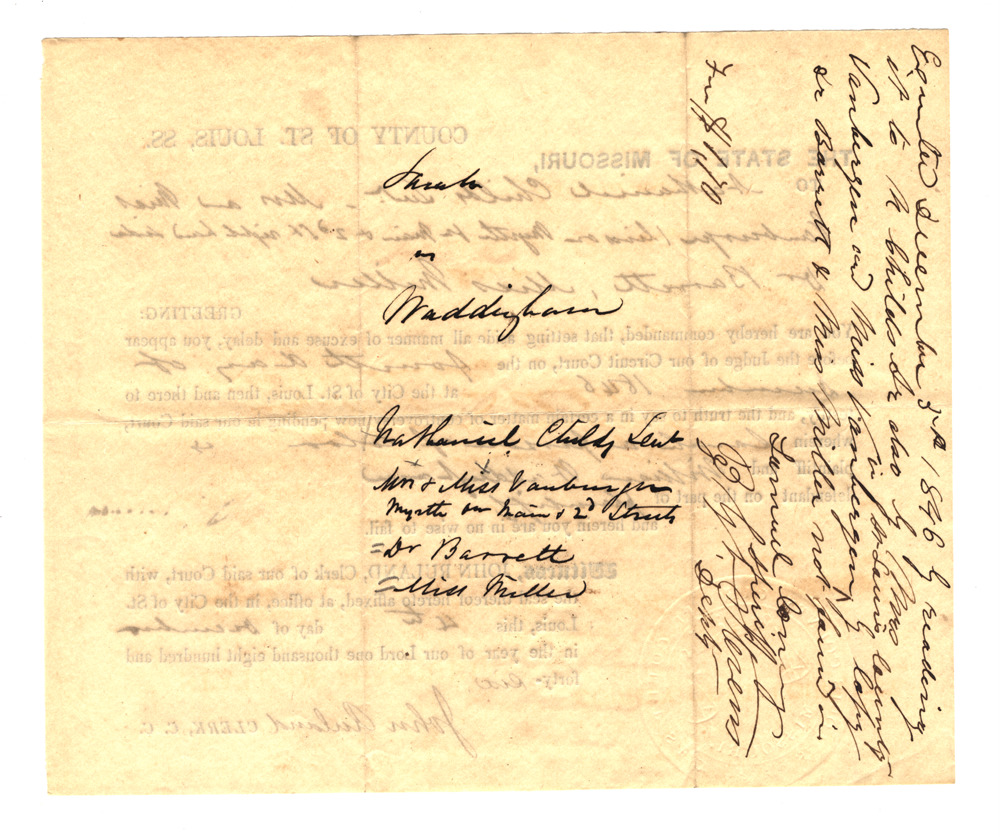 Sarah
vs
Waddingham
Nathaniel Childs Senr
Mrs & Miss Vanburgen
Myrtle btw Main & 2d Streets
= Dr Barrett
= Miss Miller
Executed December 3rd 1846 by reading
it to N Childs Sr also by
Vanbergen and Miss Vanbergen by Copy
Dr Barrett & Miss Miller not found in
in St Louis County
Samuel Conner
Sheriff
Depty
THE STATE OF MISSOURI,
COUNTY OF ST. LOUIS, SS.
To Nathaniel Childs Sen. - Mrs and Miss
Dr Barrett, Miss Miller
GREETING:
You are hereby commanded, that setting aside all manner of excuse and delay, you appear
before the Judge of our Circuit Court, on the fourth day of
December 1846 at the City of St. Louis, then and there to
testify, and the truth to say in a certain matter of controversy now pending in our said Court,
wherein
plaintiff and
defendant on the part of
and herein you are in no wise to fail.
Witness, JOHN RULAND, Clerk of our said Court, with
the seal thereof hereto affixed, at office, in the City of St.
Louis, this day of December
in the year of our Lord one thousand eight hundred and
forty-six
John Ruland CLERK, C. C.